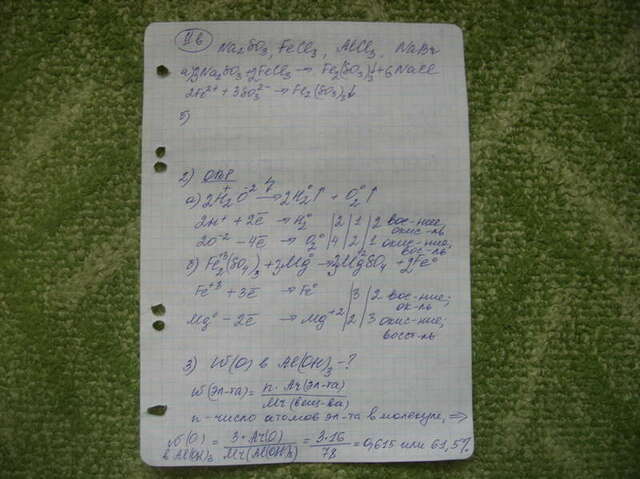 II в
Na₂SO₃, FeCl₃, AlCl₃, NaBr
а) 3Na₂SO₃ + 2FeCl₃ → Fe₂(SO₃)₃↓ + 6NaCl
2Fe³⁺ + 3SO₃²⁻ → Fe₂(SO₃)₃↓
б)
2) ОВР
а) 2H₂⁺O⁻² → 2H₂⁰↑ + O₂⁰↑
2H⁺ + 2ē → H₂⁰ | 2 | 1 | 2 вос-ние, окис-ль
2O⁻² - 4ē → O₂⁰ | 4 | 2 | 1 окис-ние, вос-ль
б) Fe₂⁺³(SO₄)₃ + 3Mg⁰ → 3Mg⁺²SO₄ + 2Fe⁰
Fe⁺³ + 3ē → Fe⁰ | 3 | 2 вос-ние; ок-ль
Mg⁰ - 2ē → Mg⁺² | 2 | 3 окис-ние, восст-ль
3) W(O) в Al(OH)₃ - ?
W(эл-та) = n · Ar(эл-та) / Mr(вещ-ва)
n - число атомов эл-та в молекуле, ⇒
W(O) в Al(OH)₃ = 3·Ar(O) / Mr(Al(OH)₃) = 3·16 / 78 = 0,615 или 61,5%